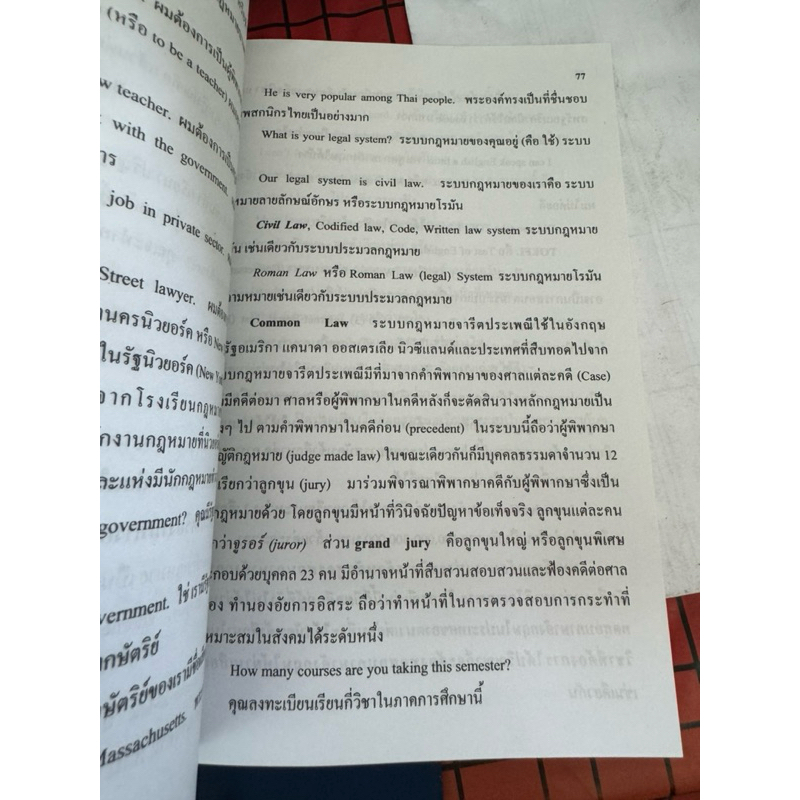 ผมต้องการเป็นผู้พิพา
(หรือ to be a teacher)
w teacher. ผมต้องการเป็น
with the government.
การ
job in private sector.
Street lawyer. ผมต้อง
านครนิวยอร์ค หรือ New
ในรัฐนิวยอร์ค (New Y
จากโรงเรียนกฎหมาย
ักงานกฎหมายที่นิวยอ
ละแห่งมีนักกฎหมาย
government? คุณมี
vernment. ใช่ เรามี
กษัตริย์
ษัตริย์ของเรามีชื่อ
Massachusetts.
77
He is very popular among Thai people. พระองค์ทรงเป็นที่ชื่นชอบ
พสกนิกรไทยเป็นอย่างมาก
What is your legal system? ระบบกฎหมายของคุณอยู่ (คือ ใช้) ระบบ
Our legal system is civil law. ระบบกฎหมายของเราคือ ระบบ
หมายลายลักษณ์อักษร หรือระบบกฎหมายโรมัน
Civil Law, Codified law, Code, Written law system ระบบกฎหมาย
ัน เช่นเดียวกับระบบประมวลกฎหมาย
Roman Law หรือ Roman Law (legal) System ระบบกฎหมายโรมัน
วามหมายเช่นเดียวกับระบบประมวลกฎหมาย
Common Law ระบบกฎหมายจารีตประเพณีใช้ในอังกฤษ
รัฐอเมริกา แคนาดา ออสเตรเลีย นิวซีแลนด์และประเทศที่สืบทอดไปจาก
บบกฎหมายจารีตประเพณีมีที่มาจากคำพิพากษาของศาลแต่ละคดี (Case)
มีคดีต่อมา ศาลหรือผู้พิพากษาในคดีหลังก็จะตัดสินวางหลักกฎหมายเป็น
งๆ ไป ตามคำพิพากษาในคดีก่อน (precedent) ในระบบนี้ถือว่าผู้พิพากษา
ญัติกฎหมาย (judge made law) ในขณะเดียวกันก็มีบุคคลธรรมดาจำนวน 12
เรียกว่าลูกขุน (jury) มาร่วมพิจารณาพิพากษาคดีกับผู้พิพากษาซึ่งเป็น
ฎหมายด้วย โดยลูกขุนมีหน้าที่วินิจฉัยปัญหาข้อเท็จจริง ลูกขุนแต่ละคน
กว่าจูรอร์ (juror) ส่วน grand jury คือลูกขุนใหญ่ หรือลูกขุนพิเศษ
กอบด้วยบุคคล 23 คน มีอำนาจหน้าที่สืบสวนสอบสวนและฟ้องคดีต่อศาล
อง ทำนองอัยการอิสระ ถือว่าทำหน้าที่ในการตรวจสอบการกระทำที่
หมาะสมในสังคมได้ระดับหนึ่ง
How many courses are you taking this semester?
คุณลงทะเบียนเรียนกี่วิชาในภาคการศึกษานี้